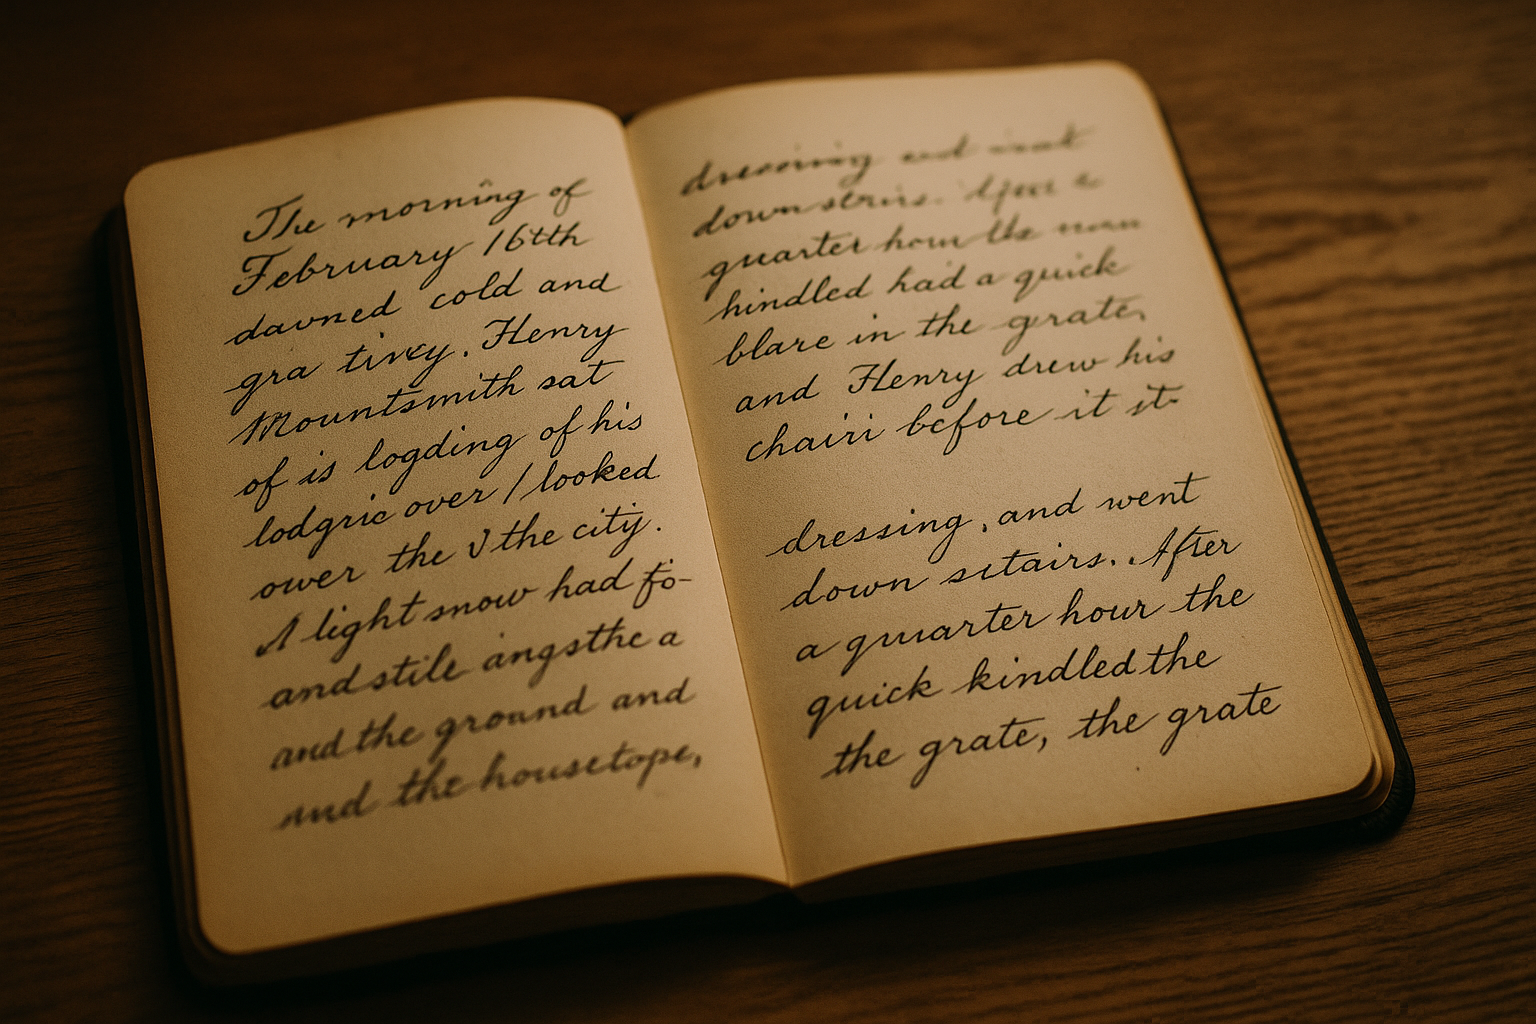 The morning of
February 16tth
davned cold and
gra tivey. Henry
Mountsmith sat
of is logding of his
lodgric over / looked
ower the V the city.
A light snow had fo-
and stile angsthe a
and the ground and
and the housetope,
dressirig and
down
quarter hour the
hindled had a quick
blare in the grate,
and Henry drew his
chairi before it st-
dressing, and went
down sitairs. After
a quuarter hour the
quick kindled the
the grate, the grate